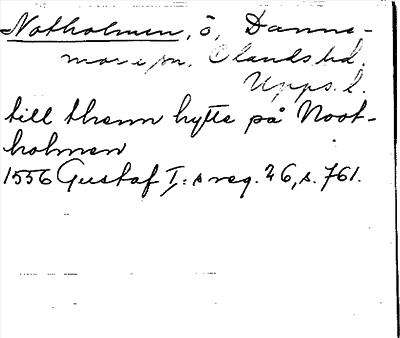 Notholmen, ö, Danne-
mora sn. Olands hd.
Upps. l.
till thenn hytte på Noot-
holmen
1556 Gustaf I:s reg. 26, s. 761.